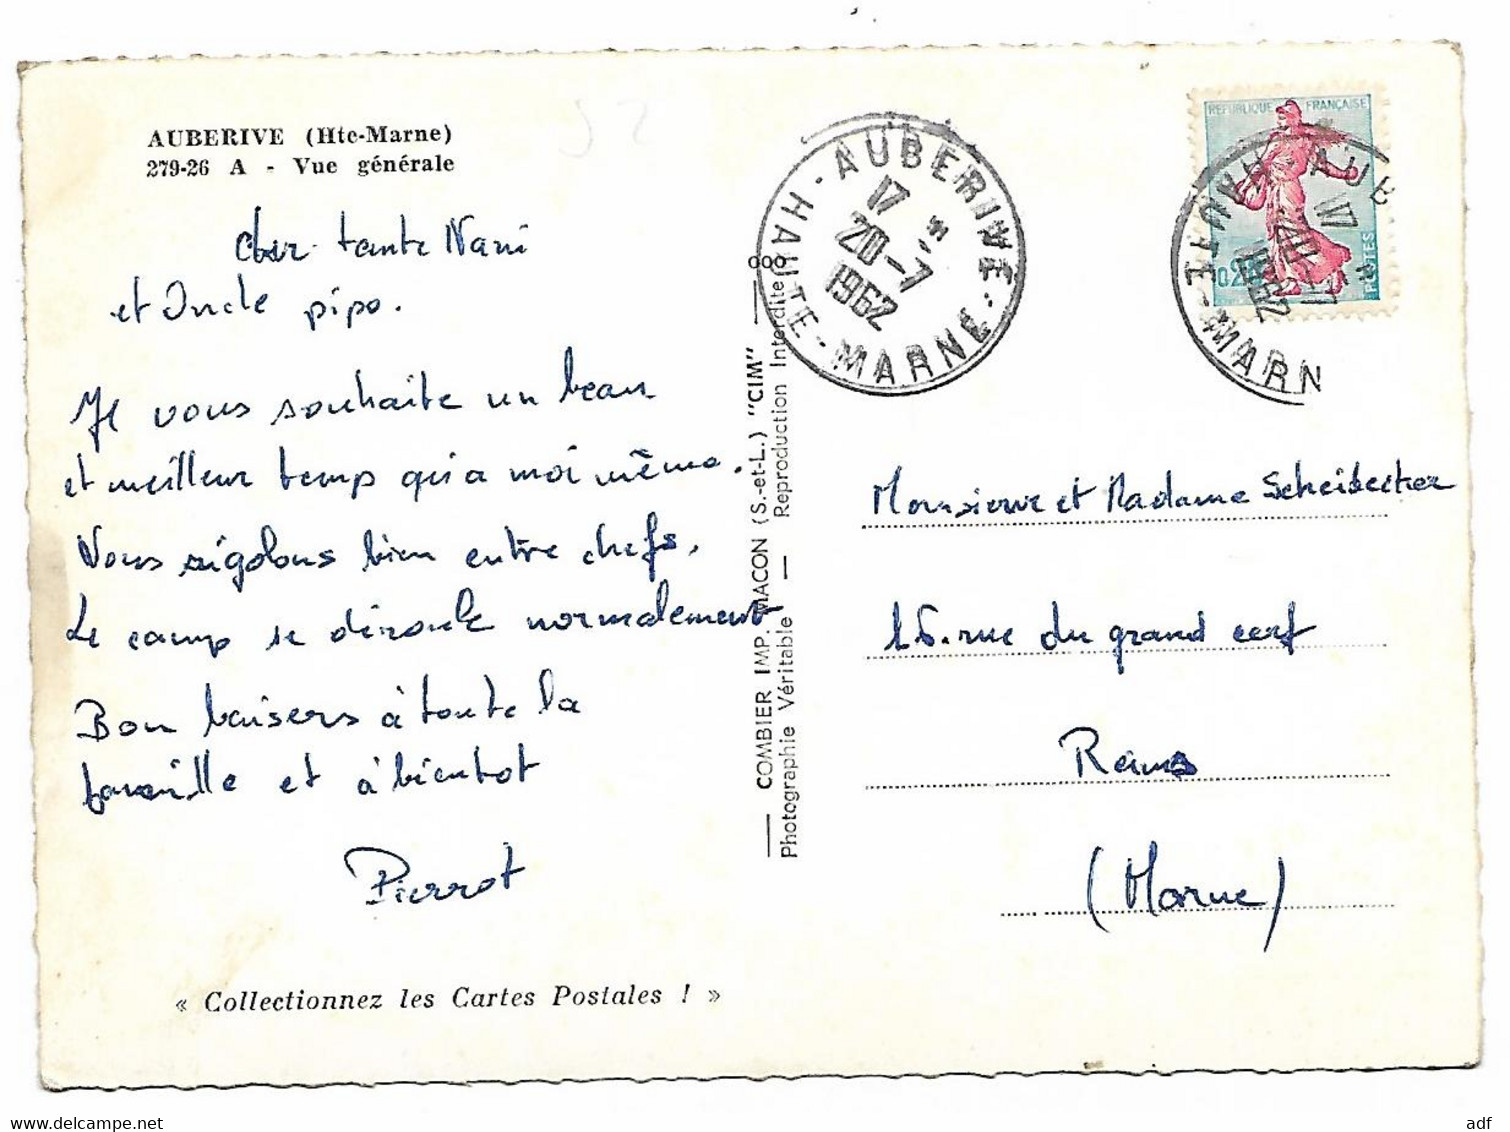 AUBERIVE (Hte-Marne)
279-26 A - Vue générale
Cher tante Nani
et Oncle pipo.
Je vous souhaite un beau
et meilleur temp qu'a moi même.
Nous rigolons bien entre chefs.
Le camp se déroule normalement
Bon baisers à toute la
famille et à bientot
Pierrot
« Collectionnez les Cartes Postales ! »
COMBIER IMP. MACON (S.-et-L.) "CIM"
Photographie Véritable — Reproduction Interdite
AUBERIVE
17
20-7
1962
HAUTE-MARNE
REPUBLIQUE FRANÇAISE
POSTES
AUB
17
20-7
1962
HAUTE-MARN
Monsieur et Madame Scheidecker
16. rue du grand cerf
Reims
(Marne)
adf